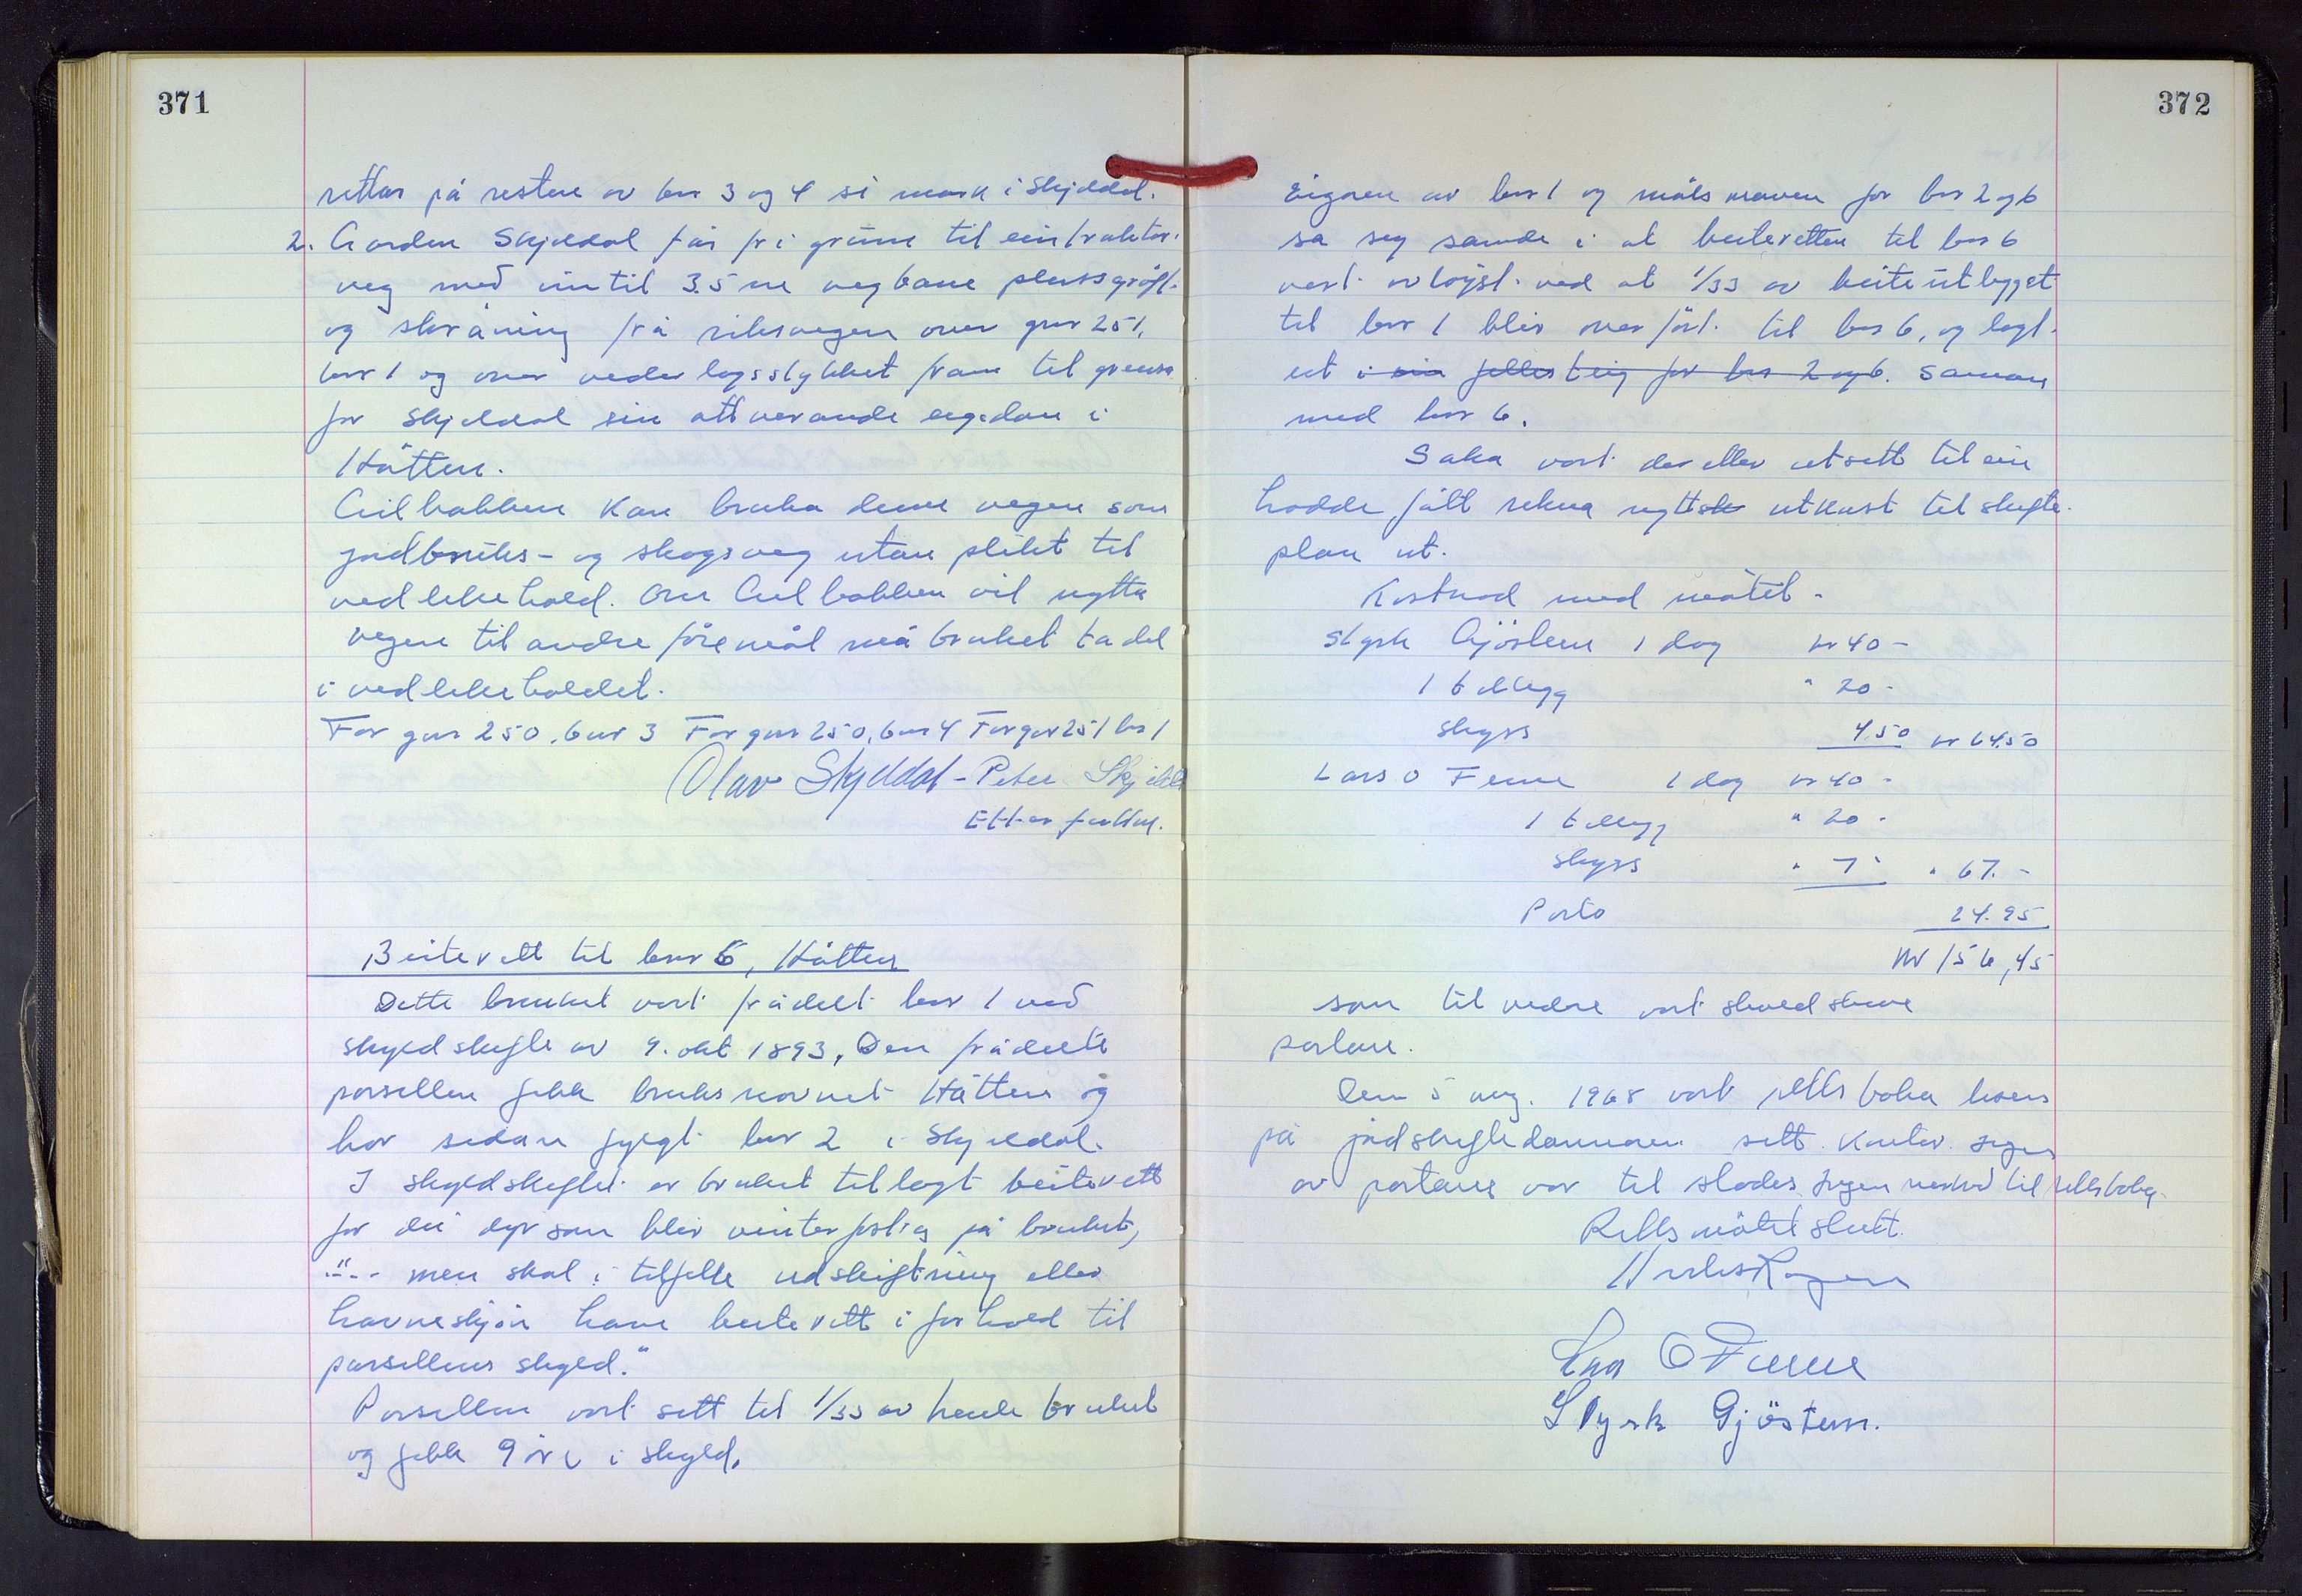 371
rettar på resten av bnr 3 og 4 si mark i Skjeldal.
2. Garden Skjeldal får fri grunn til ein traktor-
veg med inntil 3.5 m vegbane pluss grøft
og skråning frå riksvegen over gnr 251,
bnr 1 og over vederlagsstykket fram til grensa
for Skjeldal sin attverande eigedom i
Håtten.
kan bruka denne vegen som
jordbruks- og skogsveg utan plikt til
vedlikehald. Om vil nytta
vegen til andre føremål må bruket ta del
i vedlikehaldet.
For gnr 250, bnr 3 For gnr 250, bnr 4 For gnr 251 bnr 1
Olav Skjeldal - Peter Skjeldal
Etter fullm.
Beiterett til bnr 6, Håtten
Dette bruket vart frådelt bnr 1 ved
skyldskifte av 9. okt 1893. Den frådelte
parsellen fekk bruksnavnet Håtten og
har sidan fylgt bnr 2 i Skjeldal.
I skyldskiftet er bruket tillagt beiterett
for dei dyr som blir vinterfostra på bruket,
"... men skal i tilfelle udskiftning eller
havneskjøn have beiterett i forhold til
parsellens skyld."
Parsellen vart sett til 1/33 av heile bruket
og fekk 9 øre i skyld.
372
Eigaren av bnr 1 og målsmannen for bnr 2 og 6
sa seg samde i at beiteretten til bnr 6
vert avløyst ved at 1/33 av beiteutlegget
til bnr 1 blir overført til bnr 6, og lagt
ut i ein felles teig for bnr 2 og 6. saman
med bnr 6.
Saka vart deretter utsett til ein
hadde fått rekna nytt sk utkast til skifte-
plan ut.
Kostnad med møtet.
Styrk Gjøstein 1 dag kr 40 -
1 tillegg " 20 -
skyss 4.50 kr 64.50
Lars O Fenne 1 dag kr 40 -
1 tillegg " 20 -
skyss " 7 - " 67. -
Porto 24.95
kr 156,45
som til vedre vart
partane.
Den 5 aug. 1968 vart rettsboka
på jordskiftedommaren sitt kontor. Ingen
av partane var til stades. Ingen merknad til rettsboka.
Rettsmøtet slutt.
Lars O Fenne
Styrk Gjøstein.